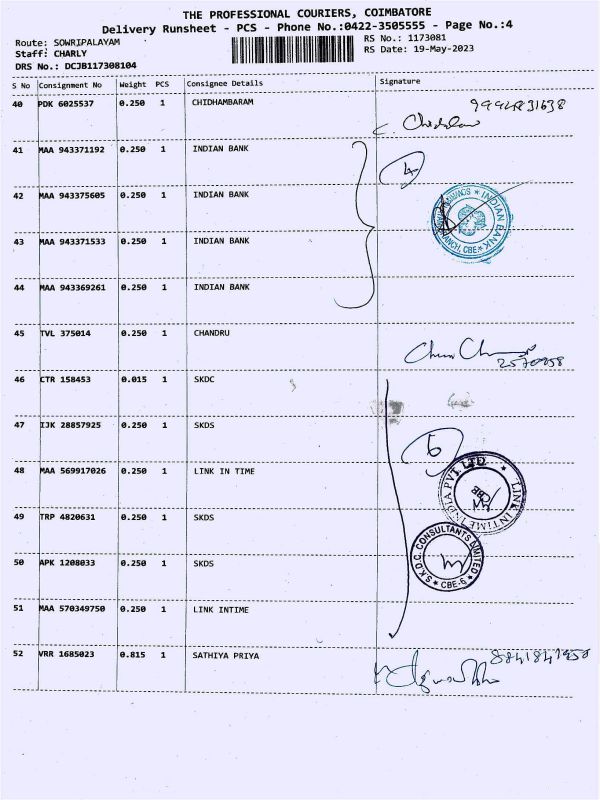 THE PROFESSIONAL COURIERS, COIMBATORE
Delivery Runsheet - PCS - Phone No.:0422-3505555 - Page No.:4
Route: SOWRIPALAYAM
RS No.: 1173081
Staff: CHARLY
RS Date: 19-May-2023
DRS No.: DCJB117308104
S No Consignment No Weight PCS Consignee Details Signature
40 PDK 6025537 0.250 1 CHIDHAMBARAM
41 MAA 943371192 0.250 1 INDIAN BANK
4
42 MAA 943375605 0.250 1 INDIAN BANK
INDIAN BANK
43 MAA 943371533 0.250 1 INDIAN BANK
44 MAA 943369261 0.250 1 INDIAN BANK
45 TVL 375014 0.250 1 CHANDRU
46 CTR 158453 0.015 1 SKDC
47 IJK 28857925 0.250 1 SKDS
48 MAA 569917026 0.250 1 LINK IN TIME
LINK INTIME INDIA PVT. LTD.
CBE
49 TRP 4820631 0.250 1 SKDS
50 APK 1208033 0.250 1 SKDS
S.K.D.C. CONSULTANTS LIMITED
CBE-6
51 MAA 570349750 0.250 1 LINK INTIME
52 VRR 1685023 0.815 1 SATHIYA PRIYA